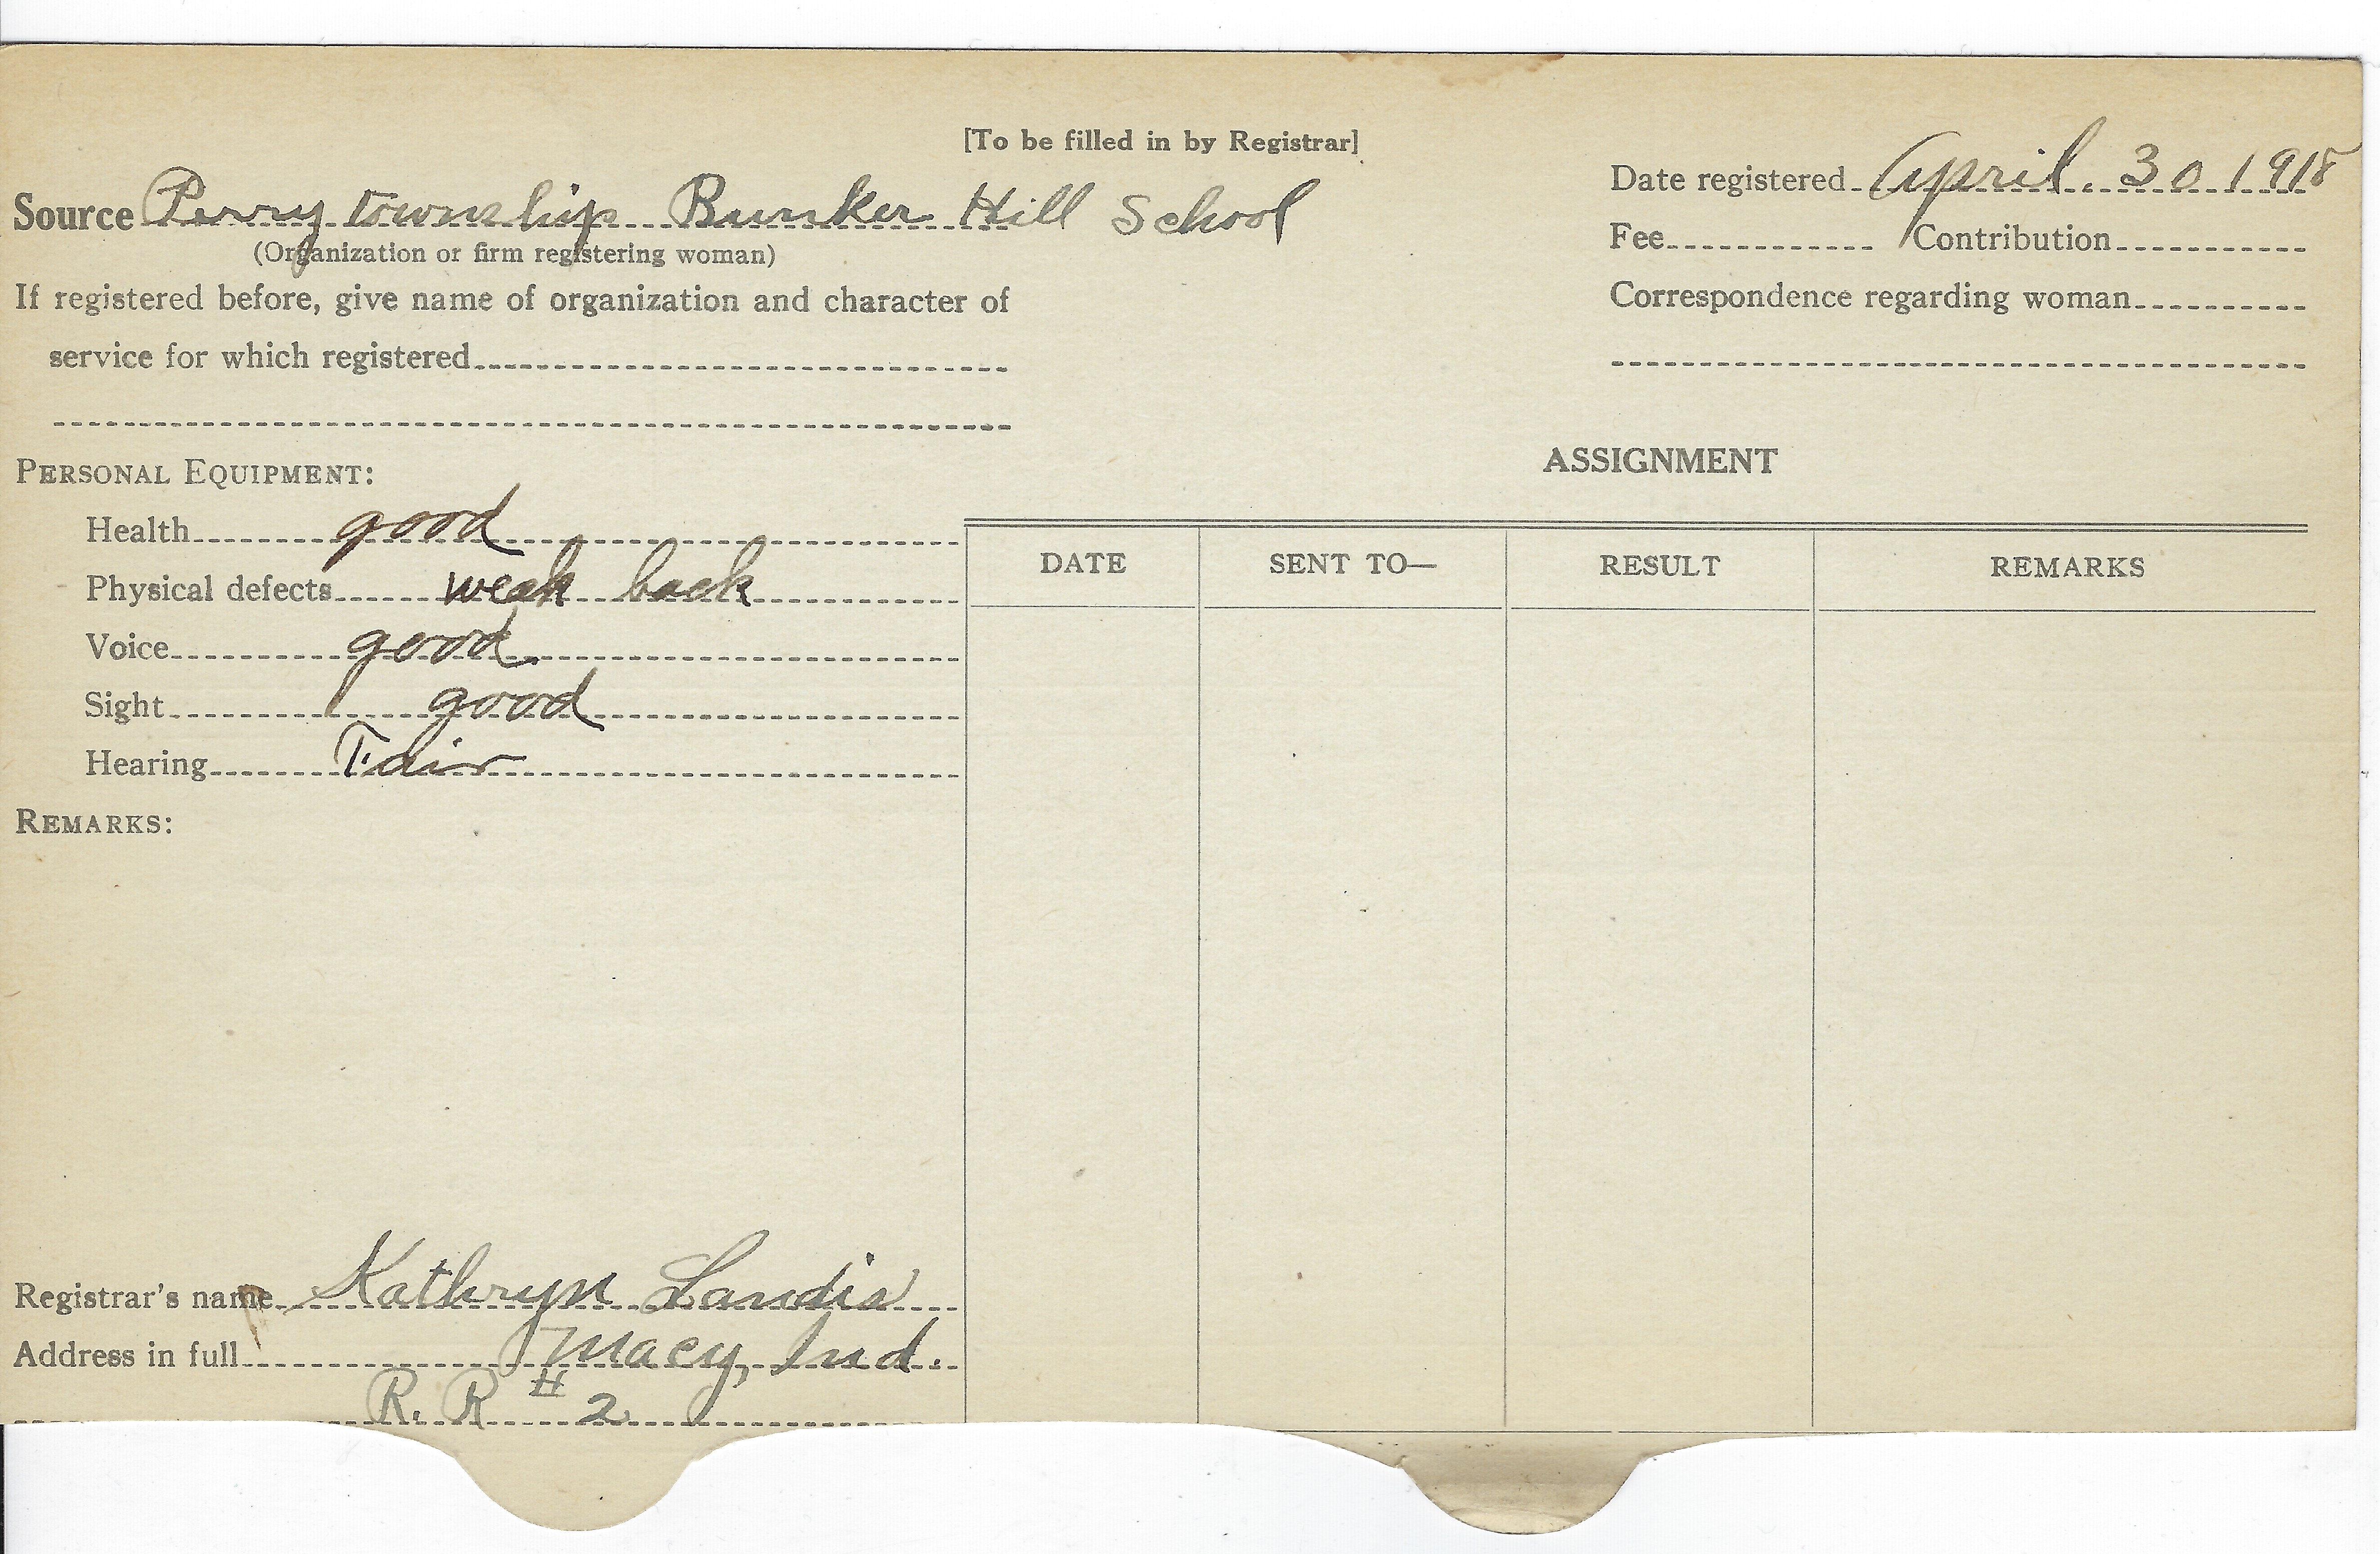 [To be filled in by Registrar]
Source Perry township Bunker Hill School
(Organization or firm registering woman)
If registered before, give name of organization and character of
service for which registered
Date registered April. 30 1918
Fee Contribution
Correspondence regarding woman
PERSONAL EQUIPMENT:
Health good
Physical defects weak back
Voice good
Sight good
Hearing Fair
REMARKS:
ASSIGNMENT
DATE SENT TO— RESULT REMARKS
Registrar's name Kathryn Landis
Address in full Macy, Ind.
R. R # 2